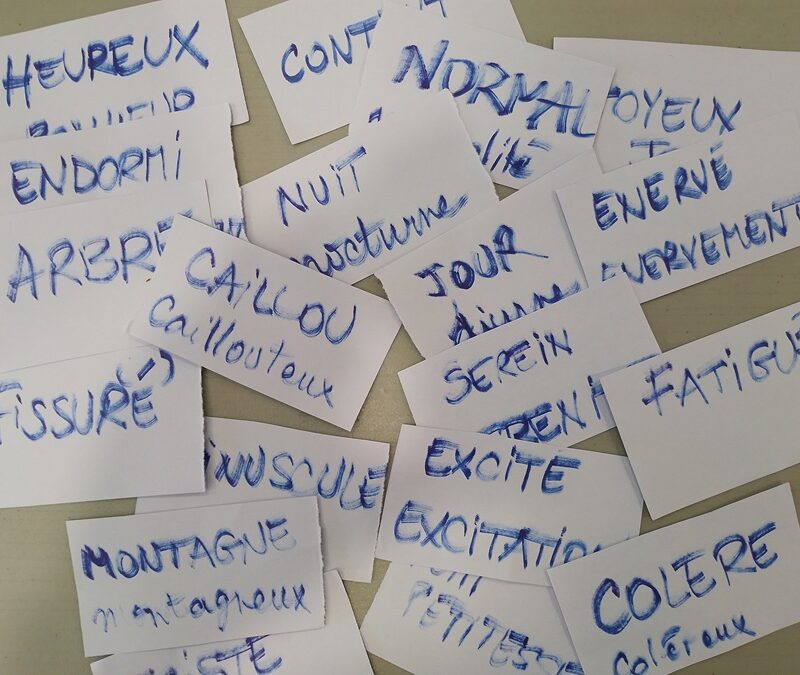 HEUREUX
CONT
NORMAL
OYEUX
ENDORMI
NUIT
nocturne
ENERVÉ
NERVEMENT
ARBRE
CAiLLOU
Caillouteux
JOUR
SEREiN
FATIGUÉ
FiSSURÉ(e)
iNUSCULE
EXCiTE
EXCiTATiO
MONTAGNE
montagneux
PETiTESSE
COLERE
Coléreux
iSTE